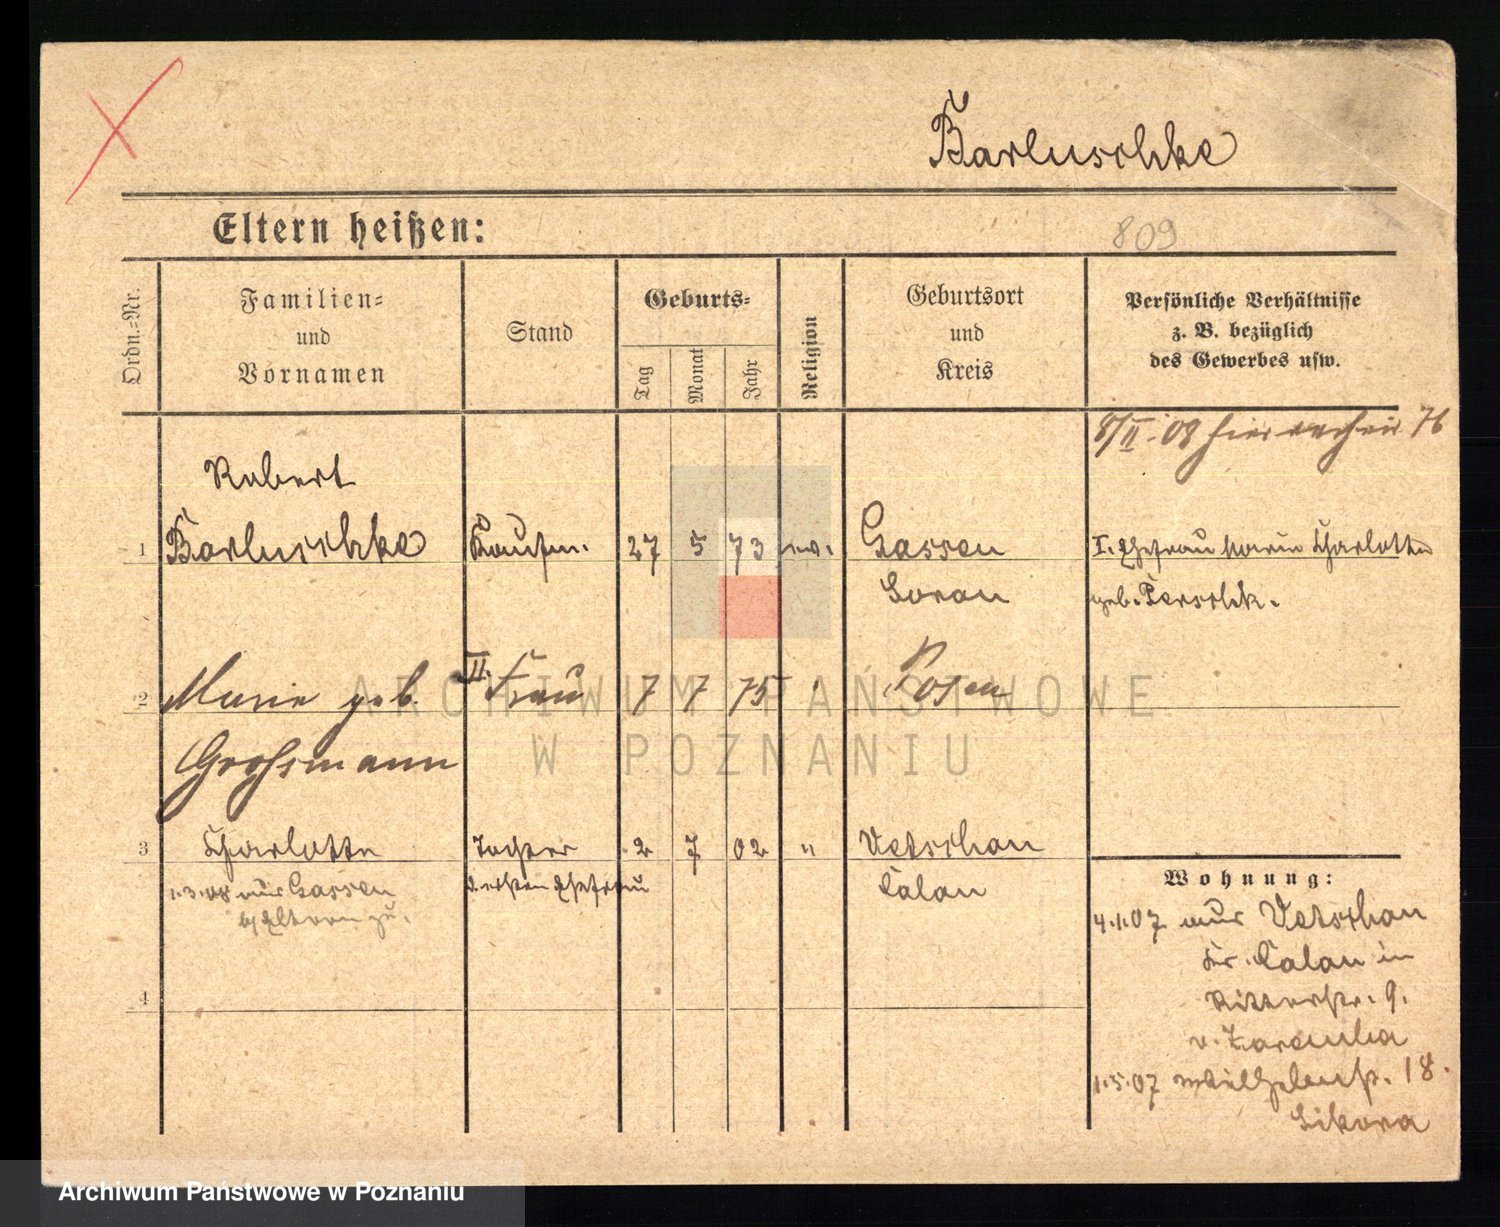 Barluschke
Eltern heißen:
809
Ordn.-Nr.
Familien-
und
Vornamen
Stand
Geburts-
Tag
Monat
Jahr
Religion
Geburtsort
und
Kreis
Persönliche Verhältnisse
z. B. bezüglich
des Gewerbes usw.
8/II. 08 hier
Robert
1 Barluschke Kaufm. 27 5 73 ev. Gassen I. Ehefrau Marie Charlotte
Sorau geb.
2 Marie geb. II. Frau 7 7 75 Posen
Grohsmann
3 Charlotte Tochter 2 7 02 " Vetschau
1.3.08 aus Gassen d. ersten Ehefrau Calau
Eltern zu.
4
Wohnung:
4.1.07 aus Vetschau
Kr. Calau in
Ritterstr. 9.
v. Zaremba
1.5.07 Wilhelmstr. 18.
Sikora
ARCHIWUM PAŃSTWOWE
W POZNANIU
Archiwum Państwowe w Poznaniu